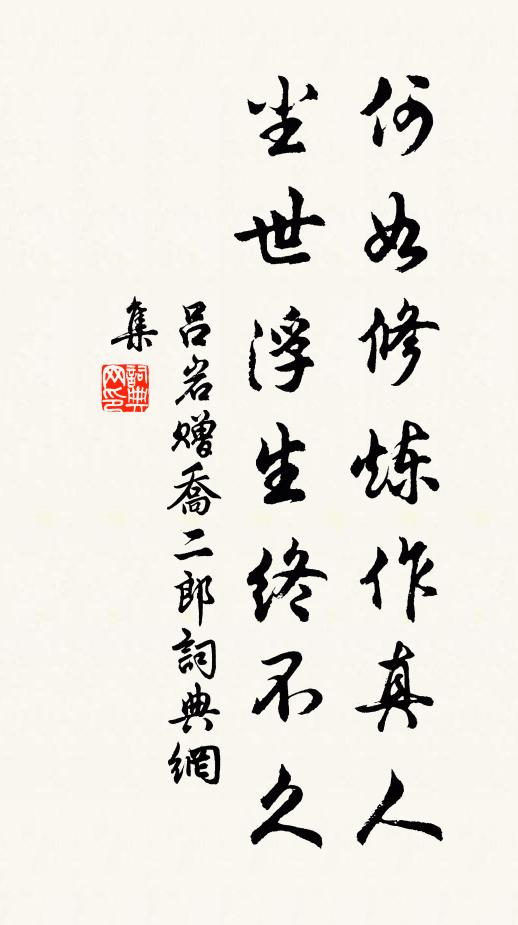 何如修炼作真人
尘世浮生终不久
吕岩赠喬二郎詞典網
集
詞典
网印